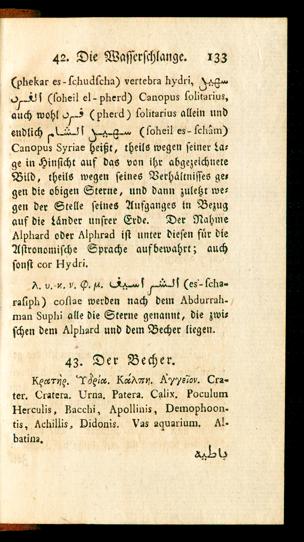 42. Die Wasserschlange. 133
(phekar es-schudscha) vertebra hydri, سهيل
الفرد (soheil el-pherd) Canopus solitarius,
auch wohl فرد (pherd) solitarius allein und
endlich سهيل الشام (soheil es-schâm)
Canopus Syriae heißt, theils wegen seiner La-
ge in Hinsicht auf das von ihr abgezeichnete
Bild, theils wegen seines Verhältnisses ge-
gen die obigen Sterne, und dann zuletzt we-
gen der Stelle seines Aufganges in Bezug
auf die Länder unsrer Erde. Der Nahme
Alphard oder Alphrad ist unter diesen für die
Astronomische Sprache aufbewahrt; auch
sonst cor Hydri.
λ. υ. κ. ν. φ. μ. الشراسيف (es-scha-
rasiph) costae werden nach dem Abdurrah-
man Suphi alle die Sterne genannt, die zwi-
schen dem Alphard und dem Becher liegen.
43. Der Becher.
Κρατήρ. Ὑδρία. Κάλπη. Ἀγγεῖον. Cra-
ter. Cratera. Urna. Patera. Calix. Poculum
Herculis, Bacchi, Apollinis, Demophoon-
tis, Achillis, Didonis. Vas aquarium. Al-
batina.
باطيه